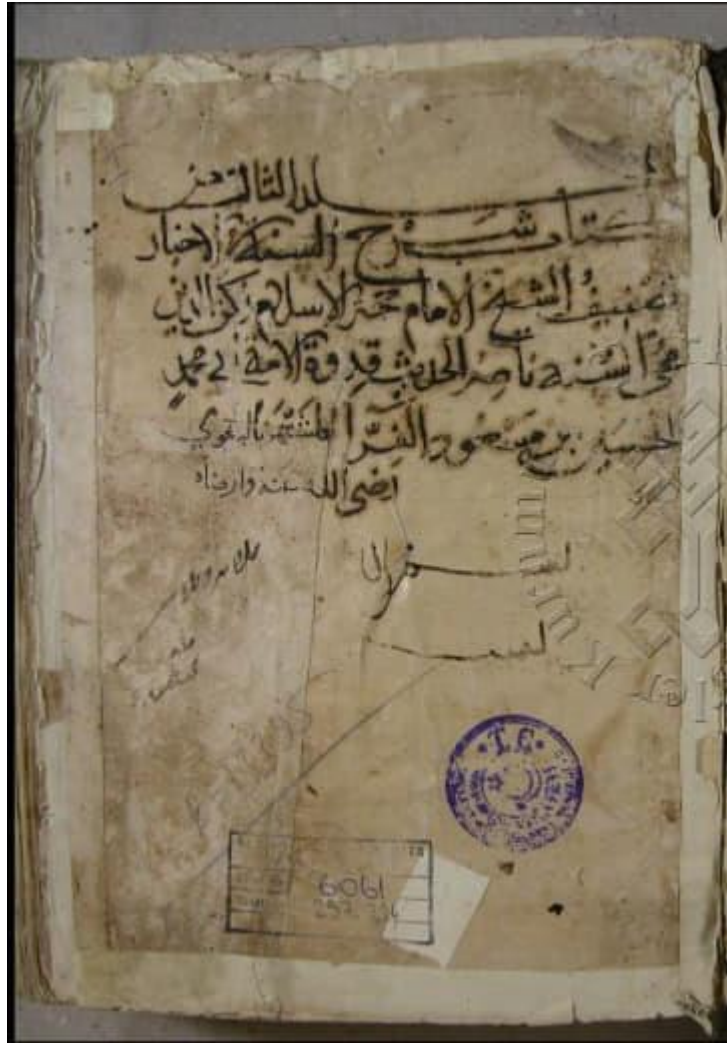 المجلد الثالث من
كتاب شرح السنة الاخبار
تصنيف الشيخ الامام حجة الاسلام ركن الدين
محيي السنة ناصر الحديث قدوة الامة ابي محمد
الحسين بن مسعود الفرا المشتهر بالبغوي
رضي الله عنه وارضاه
بسم ال
بسم
T.C.
6061
297.